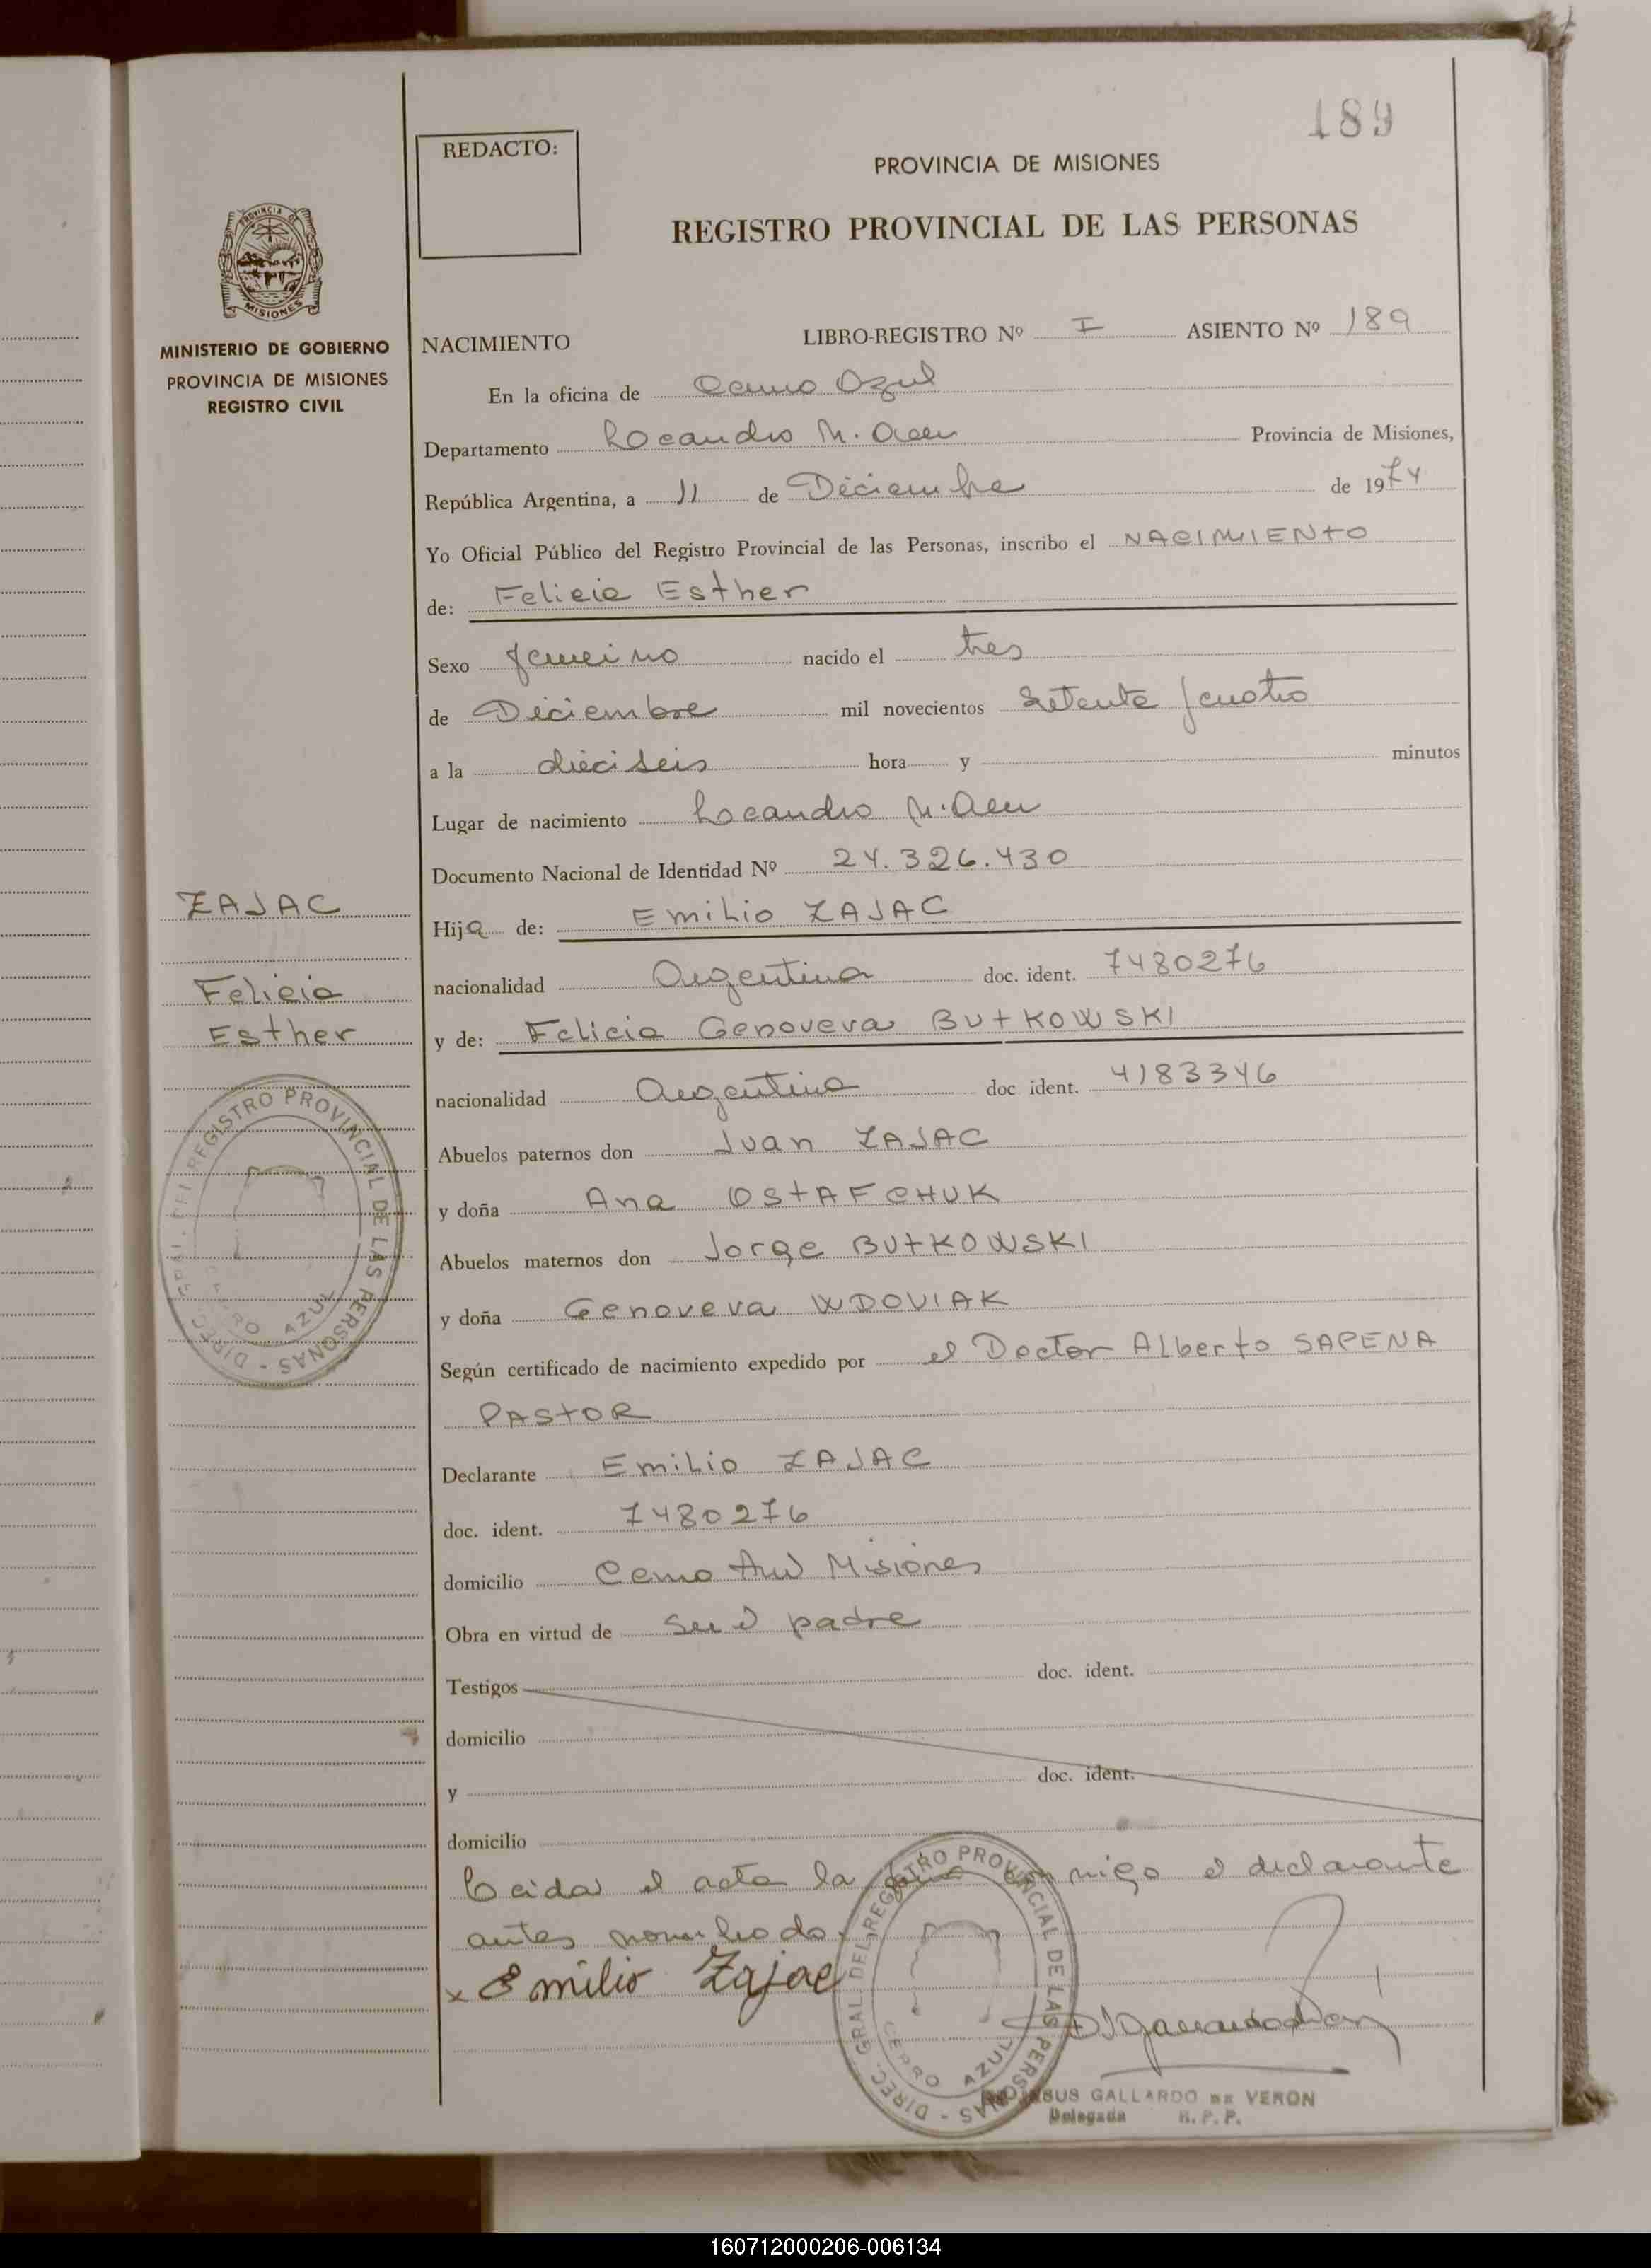 189
REDACTO:
PROVINCIA DE MISIONES
REGISTRO PROVINCIAL DE LAS PERSONAS
PROVINCIA DE
MISIONES
MINISTERIO DE GOBIERNO
PROVINCIA DE MISIONES
REGISTRO CIVIL
NACIMIENTO LIBRO-REGISTRO Nº I ASIENTO Nº 189
En la oficina de Cerro Azul
Departamento Leandro N. Alem Provincia de Misiones,
República Argentina, a 11 de Diciembre de 1974
Yo Oficial Público del Registro Provincial de las Personas, inscribo el NACIMIENTO
de: Felicia Esther
Sexo femenino nacido el tres
de Diciembre mil novecientos setenta y cuatro
a la dieciseis hora y minutos
Lugar de nacimiento Leandro N. Alem
Documento Nacional de Identidad Nº 24.326.430
ZAJAC
Felicia
Esther
Hija de: Emilio ZAJAC
nacionalidad Argentina doc. ident. 7480276
y de: Felicia Genoveva BUTKOWSKI
nacionalidad Argentina doc ident. 4183346
Abuelos paternos don Juan ZAJAC
y doña Ana OSTAFCHUK
Abuelos maternos don Jorge BUTKOWSKI
y doña Genoveva WDOVIAK
Según certificado de nacimiento expedido por el Doctor Alberto SAPENA
PASTOR
Declarante Emilio ZAJAC
doc. ident. 7480276
domicilio Cerro Azul Misiones
Obra en virtud de ser el padre
Testigos doc. ident.
domicilio
y doc. ident.
domicilio
Leida el acta la firma conmigo el declarante
antes nombrado.
x Emilio Zajac
DIREC. GRAL. DEL REGISTRO PROVINCIAL DE LAS PERSONAS
CERRO AZUL
DIREC. GRAL DEL REGISTRO PROVINCIAL DE LAS PERSONAS
CERRO AZUL
JESUS GALLARDO DE VERON
Delegada R. P. P.
160712000206-006134